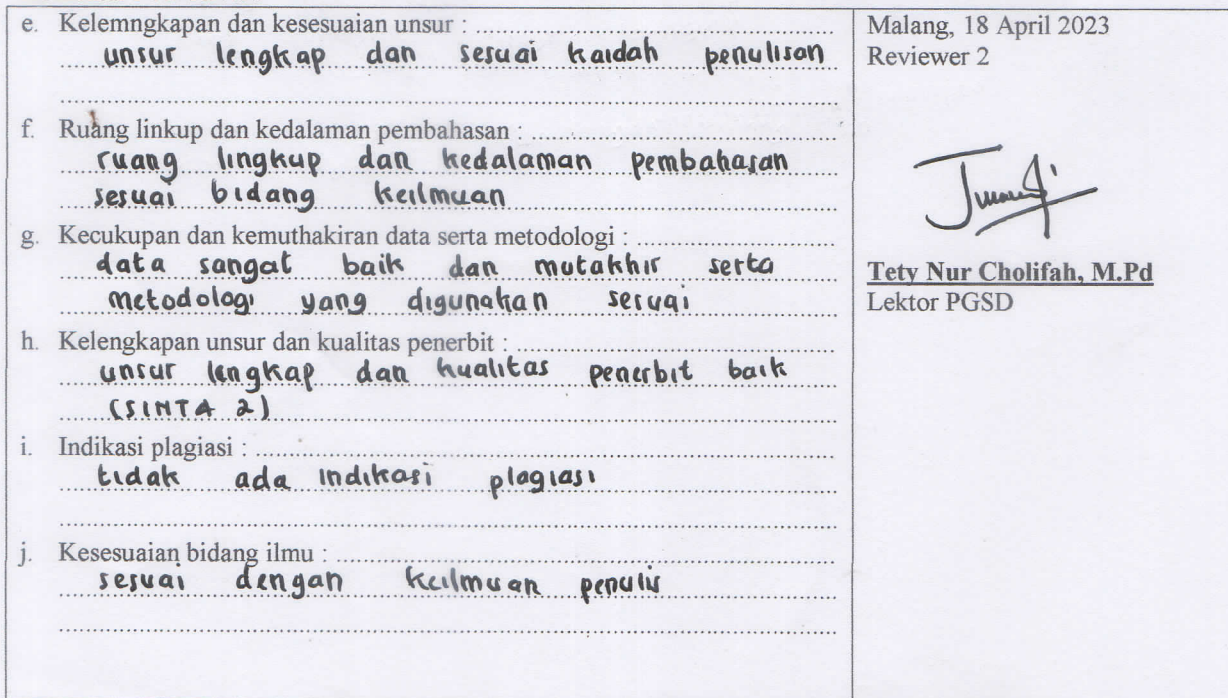 e. Kelemngkapan dan kesesuaian unsur :
unsur lengkap dan sesuai kaidah penulisan
f. Ruang linkup dan kedalaman pembahasan :
ruang lingkup dan kedalaman pembahasan
sesuai bidang keilmuan
g. Kecukupan dan kemuthakiran data serta metodologi :
data sangat baik dan mutakhir serta
metodologi yang digunakan sesuai
h. Kelengkapan unsur dan kualitas penerbit :
unsur lengkap dan kualitas penerbit baik
(SINTA 2)
i. Indikasi plagiasi :
tidak ada indikasi plagiasi
j. Kesesuaian bidang ilmu :
sesuai dengan keilmuan penulis
Malang, 18 April 2023
Reviewer 2
Tety Nur Cholifah, M.Pd
Lektor PGSD